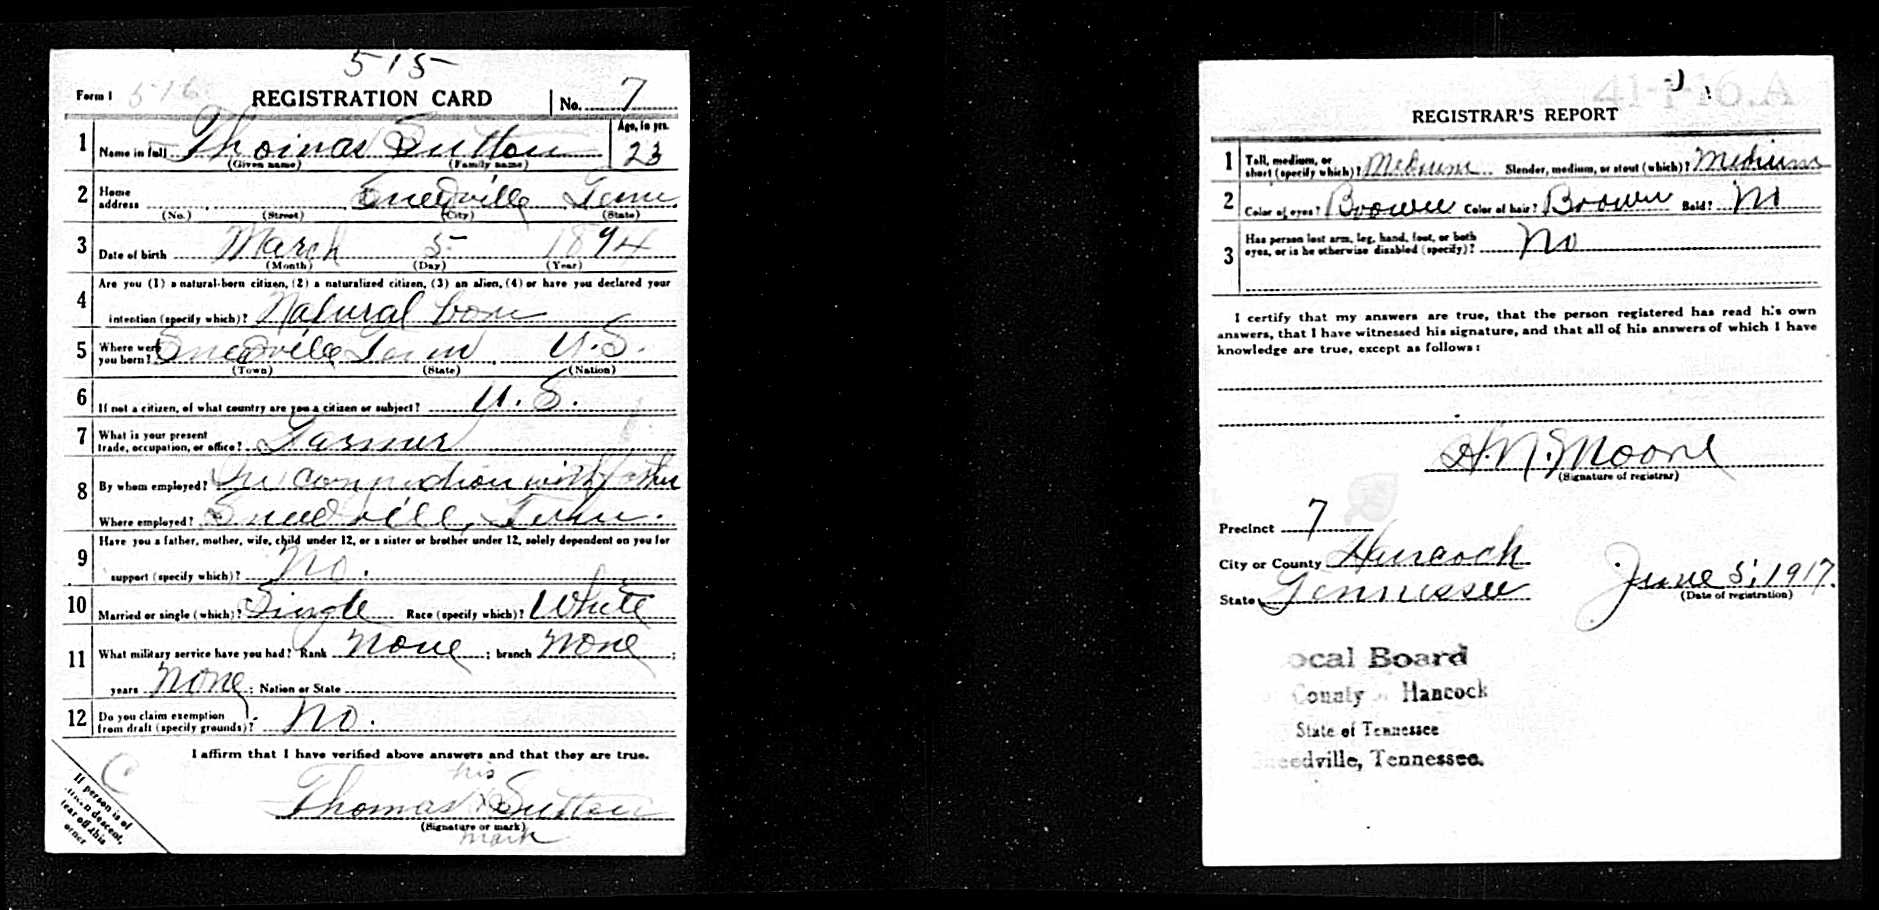 515
Form 1 516 REGISTRATION CARD No. 7
1 Name in full Thomas Sutton Age, in yrs. 23
(Given name) (Family name)
2 Home address Sneedville Tenn.
(No.) (Street) (City) (State)
3 Date of birth March 5 1894
(Month) (Day) (Year)
4 Are you (1) a natural-born citizen, (2) a naturalized citizen, (3) an alien, (4) or have you declared your
intention (specify which)? Natural born
5 Where were you born? Sneedville Tenn U.S.
(Town) (State) (Nation)
6 If not a citizen, of what country are you a citizen or subject? U.S.
7 What is your present trade, occupation, or office? Farmer
8 By whom employed? In connection with father
Where employed? Sneedville, Tenn.
9 Have you a father, mother, wife, child under 12, or a sister or brother under 12, solely dependent on you for
support (specify which)? No.
10 Married or single (which)? Single Race (specify which)? White
11 What military service have you had? Rank None ; branch None ;
years None ; Nation or State
12 Do you claim exemption from draft (specify grounds)? No.
I affirm that I have verified above answers and that they are true.
his
Thomas X Sutton
(Signature or mark)
mark
C
If person is of
descent,
tear off this
corner
41-1-16.A
REGISTRAR'S REPORT
1 Tall, medium, or short (specify which)? Medium Slender, medium, or stout (which)? Medium
2 Color of eyes? Brown Color of hair? Brown Bald? No
3 Has person lost arm, leg, hand, foot, or both eyes, or is he otherwise disabled (specify)? No
I certify that my answers are true, that the person registered has read his own
answers, that I have witnessed his signature, and that all of his answers of which I have
knowledge are true, except as follows:
H.N. Moore
(Signature of registrar)
Precinct 7
City or County Hancock
State Tennessee June 5, 1917.
(Date of registration)
ocal Board
County of Hancock
State of Tennessee
Sneedville, Tennessee.